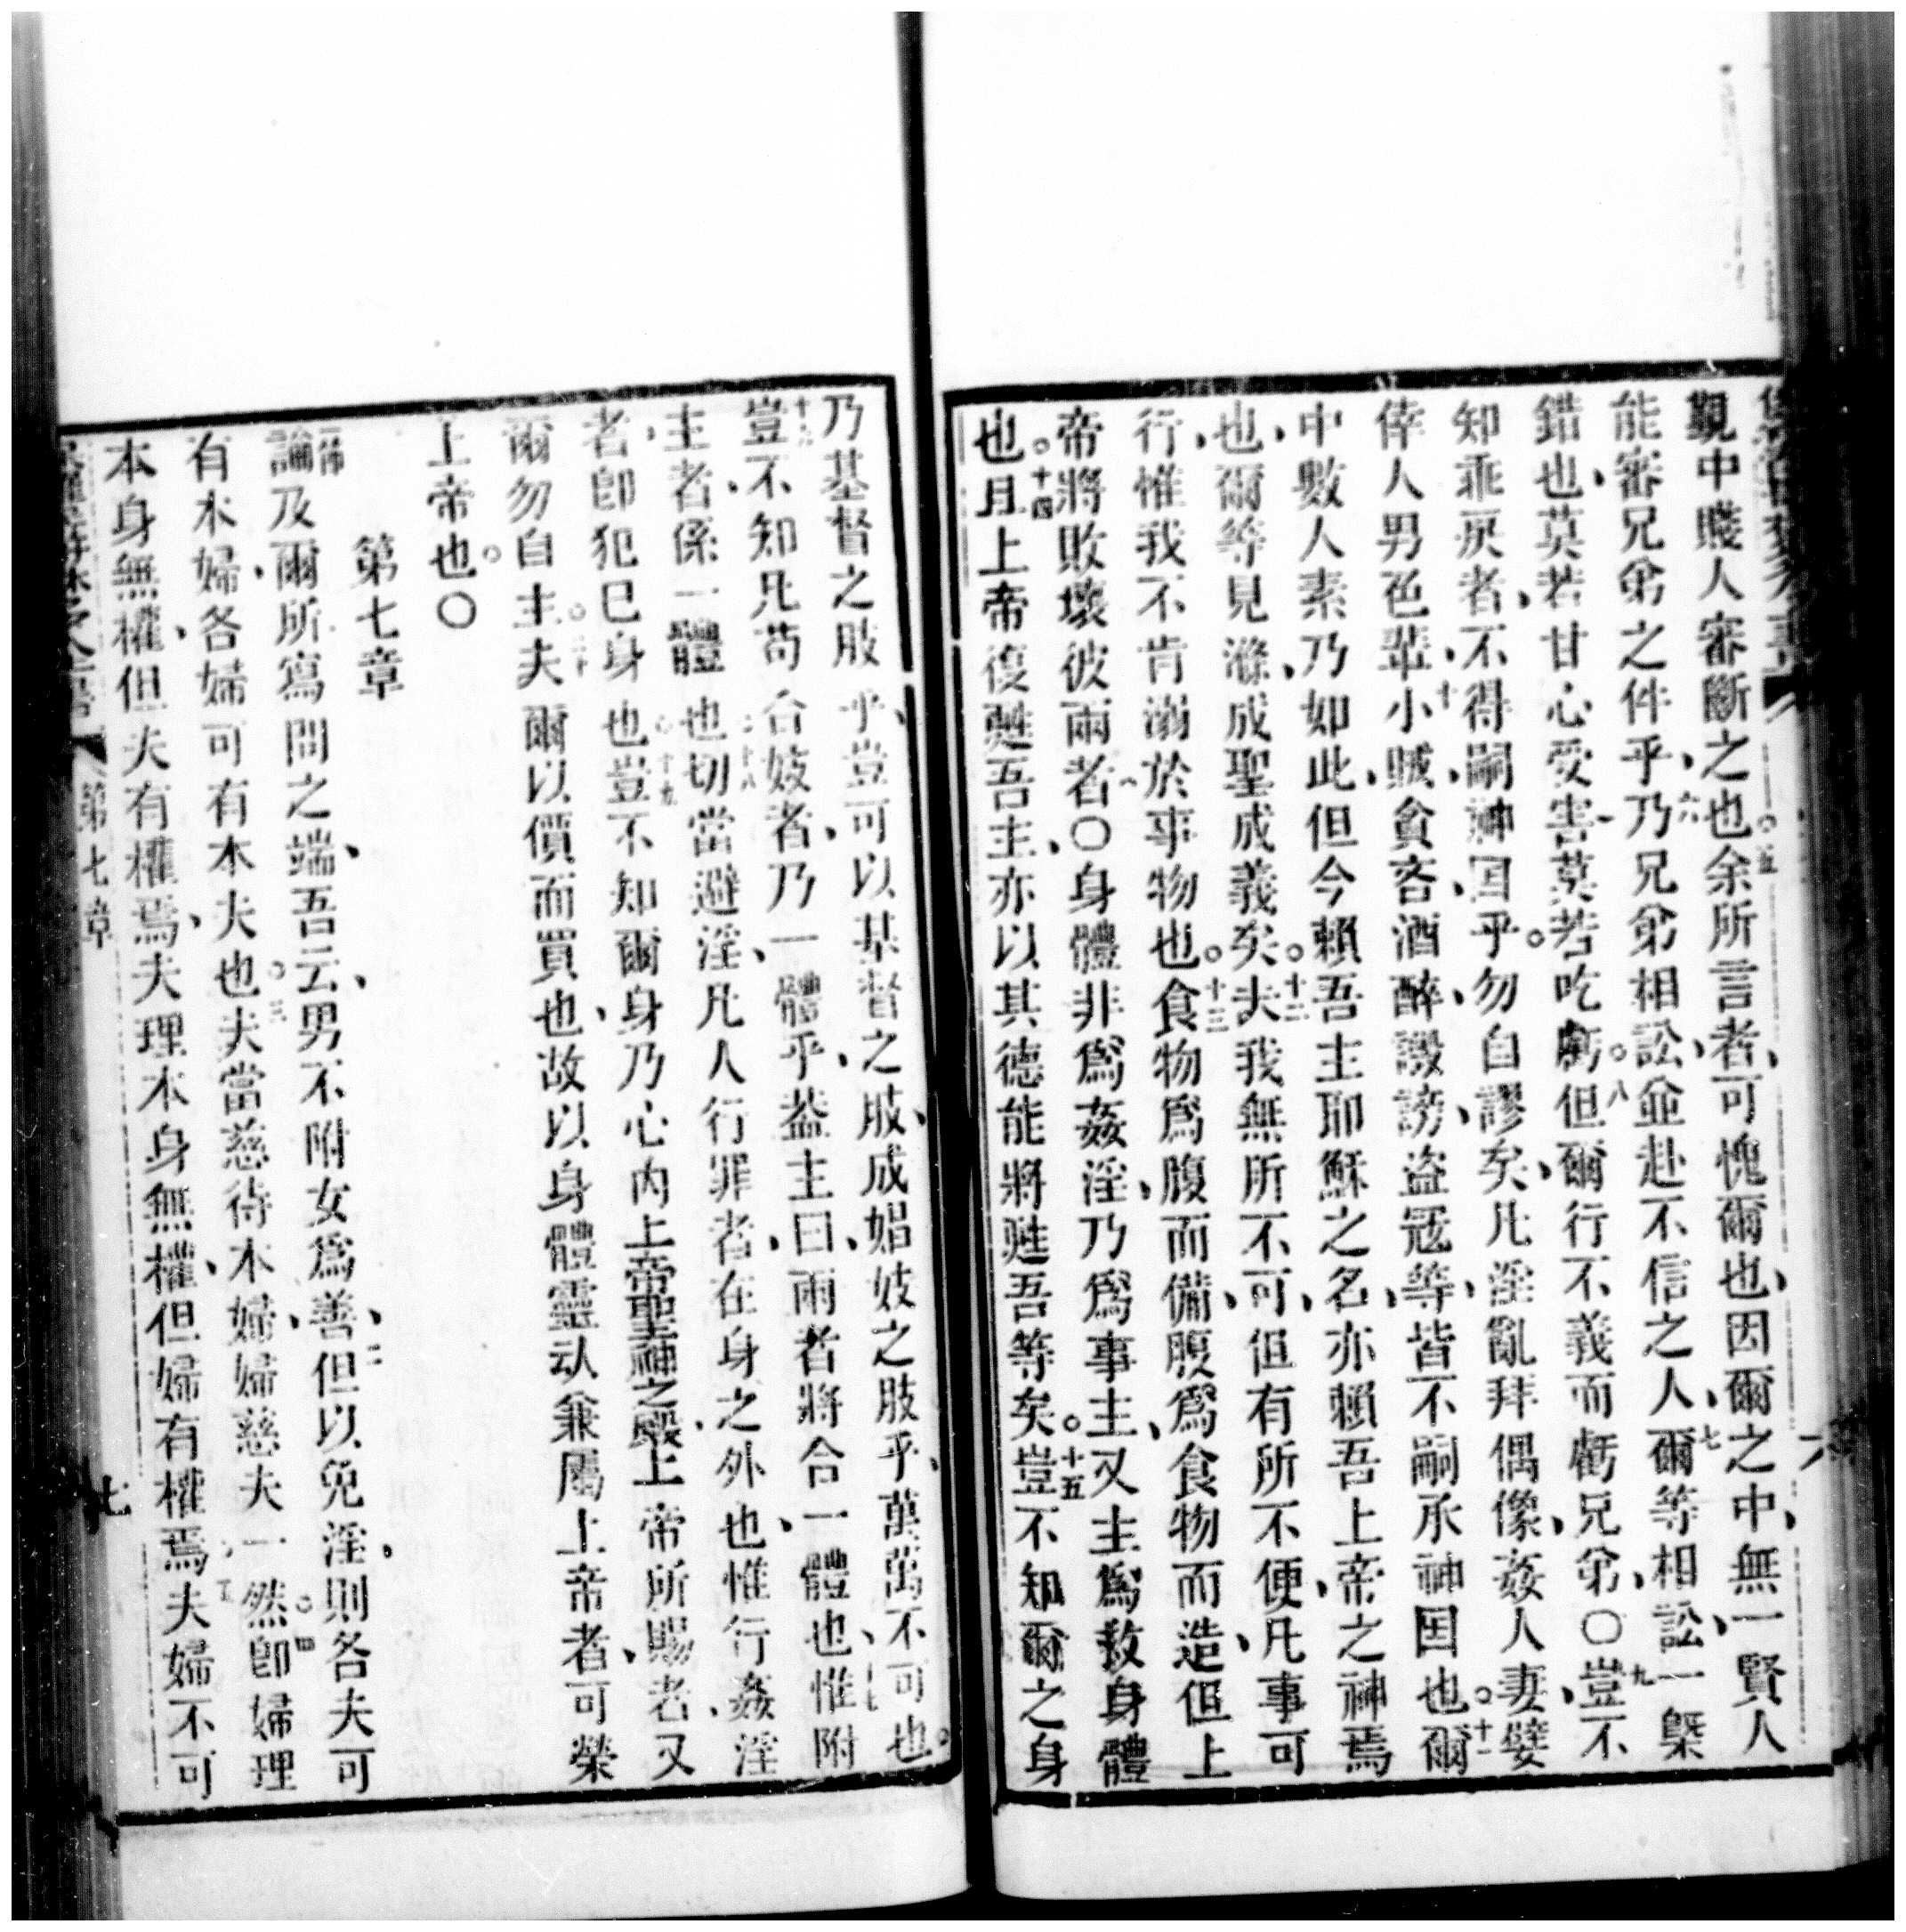 觀中賤人審斷之也。五余所言者、可愧爾也、因爾之中、無一賢人
能審兄弟之件乎、六乃兄弟相訟、並赴不信之人、七爾等相訟、一槩
錯也、莫若甘心受害、莫若吃虧。八但爾行不義而虧兄弟、〇九豈不
知乖戾者、不得嗣神囯乎。勿自謬矣、凡淫亂拜偶像、姦人妻、嬖
倖人男色輩、十小賊、貪吝、酒醉、譭謗、盗冦等、皆不嗣承神囯也。十一爾
中數人素乃如此、但今賴吾主耶穌之名、亦賴吾上帝之神焉
也、爾等見滌、成聖成義矣。十二夫我無所不可、但有所不便、凡事可
行、惟我不肯溺於事物也。十三食物爲腹而備、腹爲食物而造、但上
帝將敗壞彼兩者、〇身體非爲姦淫、乃爲事主、又主爲救身體
也。十四且上帝復甦吾主、亦以其德能將甦吾等矣。十五豈不知爾之身
乃基督之肢乎、豈可以基督之肢、成娼妓之肢乎、萬萬不可也。
十六豈不知凡苟合妓者、乃一體乎、葢主曰、兩者將合一體也、十七惟附
主者、係一體也。十八切當避淫、凡人行罪者、在身之外也、惟行姦淫
者、卽犯已身也。十九豈不知爾身乃心內上帝聖神之殿、上帝所賜者、又
爾勿自主。二十夫爾以價而買也、故以身體靈㒰兼屬上帝者、可榮
上帝也。〇
第七章
論及爾所寫問之端、吾云、男不附女爲善、二但以免淫、則各夫可
有本婦、各婦可有本夫也。三夫當慈待本婦、婦慈夫一然。四卽婦理
本身無權、但夫有權焉、夫理本身無權、但婦有權焉、五夫婦不可
第七章
七